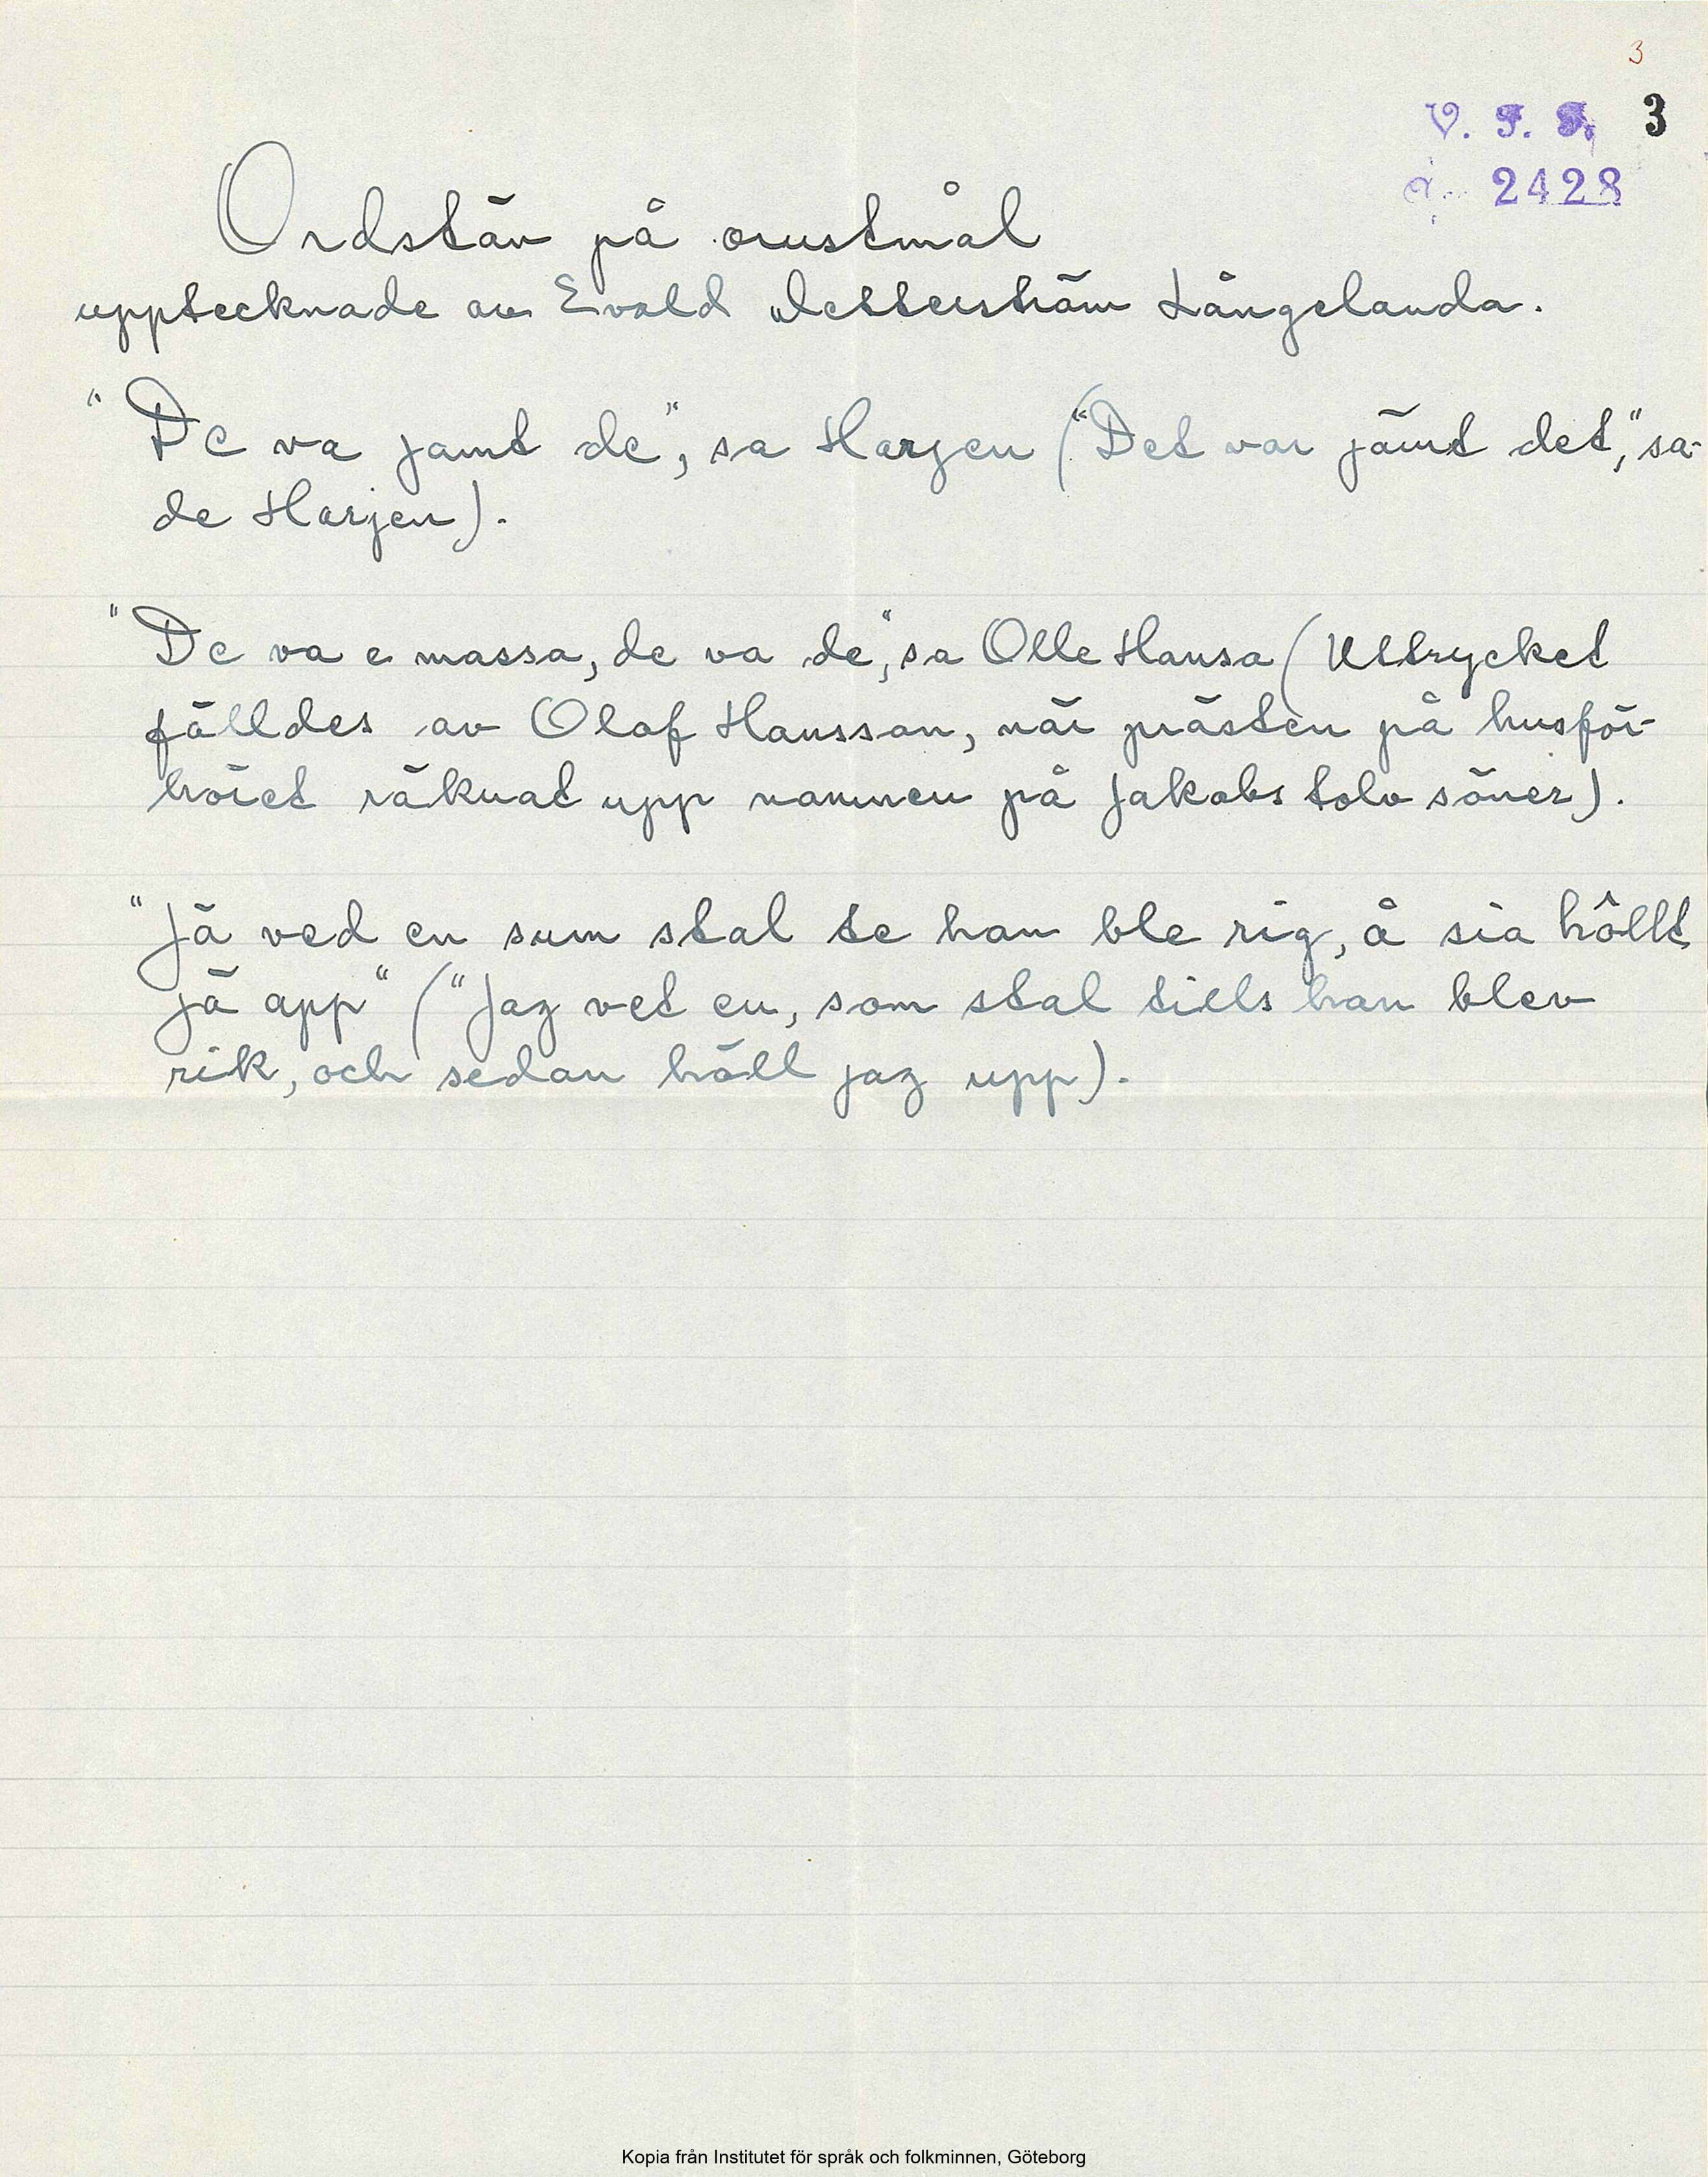 3
V. F. F. 3
a. 2428
Ordstäv på orustmål
upptecknade av Evald Zetterström Långelanda.
"De va jamt de", sa Harjen ("Det var jämt det", sa-
de Harjen).
"De va e massa, de va de", sa Olle Hansa (Uttrycket
fälldes av Olof Hansson, när prästen på husför-
höret räknat upp namnen på Jakobs tolv söner).
"Jä ved en sum stal te han ble rig, å sia hôllt
jä app" ("Jag vet en, som stal tills han blev
rik, och sedan höll jag upp).
Kopia från Institutet för språk och folkminnen, Göteborg